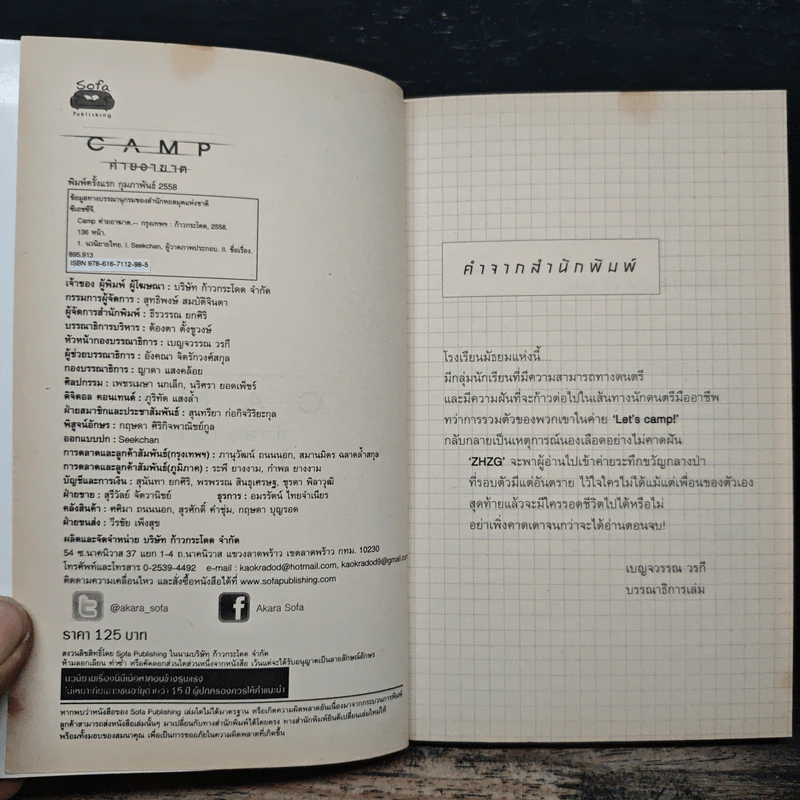 Sofa
Publishing
CAMP
ค่ายอาฆาต
พิมพ์ครั้งแรก กุมภาพันธ์ 2558
ข้อมูลทางบรรณานุกรมของสำนักหอสมุดแห่งชาติ
ซีเอชซีจี.
Camp ค่ายอาฆาต.-- กรุงเทพฯ : ก้าวกระโดด, 2558.
136 หน้า.
1. นวนิยายไทย. I. Seekchan, ผู้วาดภาพประกอบ. II. ชื่อเรื่อง.
895.913
ISBN 978-616-7112-98-5
เจ้าของ ผู้พิมพ์ ผู้โฆษณา : บริษัท ก้าวกระโดด จำกัด
กรรมการผู้จัดการ : สุทธิพงษ์ สมบัติจินดา
ผู้จัดการสำนักพิมพ์ : ธีรวรรณ ยกศิริ
บรรณาธิการบริหาร : ต้องตา ตั้งชูวงษ์
หัวหน้ากองบรรณาธิการ : เบญจวรรณ วรกี
ผู้ช่วยบรรณาธิการ : อังคณา จิตรักวงศ์สกุล
กองบรรณาธิการ : ญาดา แสงคล้อย
ศิลปกรรม : เพชรเมษา นกเล็ก, นริศรา ยอดเพ็ชร์
ดิจิตอล คอนเทนต์ : ภูริทัต แสงล้ำ
ฝ่ายสมาชิกและประชาสัมพันธ์ : สุนทรียา ก่อกิจวิริยะกุล
พิสูจน์อักษร : กฤษดา ศิริกิจพาณิชย์กูล
ออกแบบปก : Seekchan
การตลาดและลูกค้าสัมพันธ์(กรุงเทพฯ) : ภานุวัฒน์ ถนนนอก, สมานมิตร ฉลาดล้ำสกุล
การตลาดและลูกค้าสัมพันธ์(ภูมิภาค) : ระพี ยางงาม, กำพล ยางงาม
บัญชีและการเงิน : สุนันทา ยกศิริ, พรพรรณ สินธุเศรษฐ, ชุรดา พิลาวุฒิ
ฝ่ายขาย : สุรีวัลย์ จัดวานิชย์ ธุรการ : อมรรัตน์ ไทยจำเนียร
คลังสินค้า : คคิมา ถนนนอก, สุรศักดิ์ คำชุ่ม, กฤษดา บุญรอด
ฝ่ายขนส่ง : วีรชัย เพ็งสุข
ผลิตและจัดจำหน่าย บริษัท ก้าวกระโดด จำกัด
54 ซ.นาคนิวาส 37 แยก 1-4 ถ.นาคนิวาส แขวงลาดพร้าว เขตลาดพร้าว กทม. 10230
โทรศัพท์และโทรสาร 0-2539-4492 e-mail : kaokradod@hotmail.com, kaokradod9@gmail.com
ติดตามความเคลื่อนไหว และสั่งซื้อหนังสือได้ที่ www.sofapublishing.com
@akara_sofa
Akara Sofa
ราคา 125 บาท
สงวนลิขสิทธิ์โดย Sofa Publishing ในนามบริษัท ก้าวกระโดด จำกัด
ห้ามลอกเลียน ทำซ้ำ หรือคัดลอกส่วนใดส่วนหนึ่งจากหนังสือ เว้นแต่จะได้รับอนุญาตเป็นลายลักษณ์อักษร
นวนิยายเรื่องนี้มีเนื้อหาค่อนข้างรุนแรง
ไม่เหมาะกับเยาวชนอายุต่ำกว่า 15 ปี ผู้ปกครองควรให้คำแนะนำ
หากพบว่าหนังสือของ Sofa Publishing เล่มใดไม่ได้มาตรฐาน หรือเกิดความผิดพลาดอันเนื่องมาจากกระบวนการพิมพ์
ลูกค้าสามารถส่งหนังสือเล่มนั้นๆ มาเปลี่ยนกับทางสำนักพิมพ์ได้โดยตรง ทางสำนักพิมพ์ยินดีเปลี่ยนเล่มใหม่ให้
พร้อมทั้งมอบของสมนาคุณ เพื่อเป็นการขออภัยในความผิดพลาดที่เกิดขึ้น
คำจากสำนักพิมพ์
โรงเรียนมัธยมแห่งนี้...
มีกลุ่มนักเรียนที่มีความสามารถทางดนตรี
และมีความฝันที่จะก้าวต่อไปในเส้นทางนักดนตรีมืออาชีพ
ทว่าการรวมตัวของพวกเขาในค่าย ‘Let's camp!’
กลับกลายเป็นเหตุการณ์นองเลือดอย่างไม่คาดฝัน
‘ZHZG’ จะพาผู้อ่านไปเข้าค่ายระทึกขวัญกลางป่า
ที่รอบตัวมีแต่อันตราย ไว้ใจใครไม่ได้แม้แต่เพื่อนของตัวเอง
สุดท้ายแล้วจะมีใครรอดชีวิตไปได้หรือไม่
อย่าเพิ่งคาดเดาจนกว่าจะได้อ่านตอนจบ!
เบญจวรรณ วรกี
บรรณาธิการเล่ม